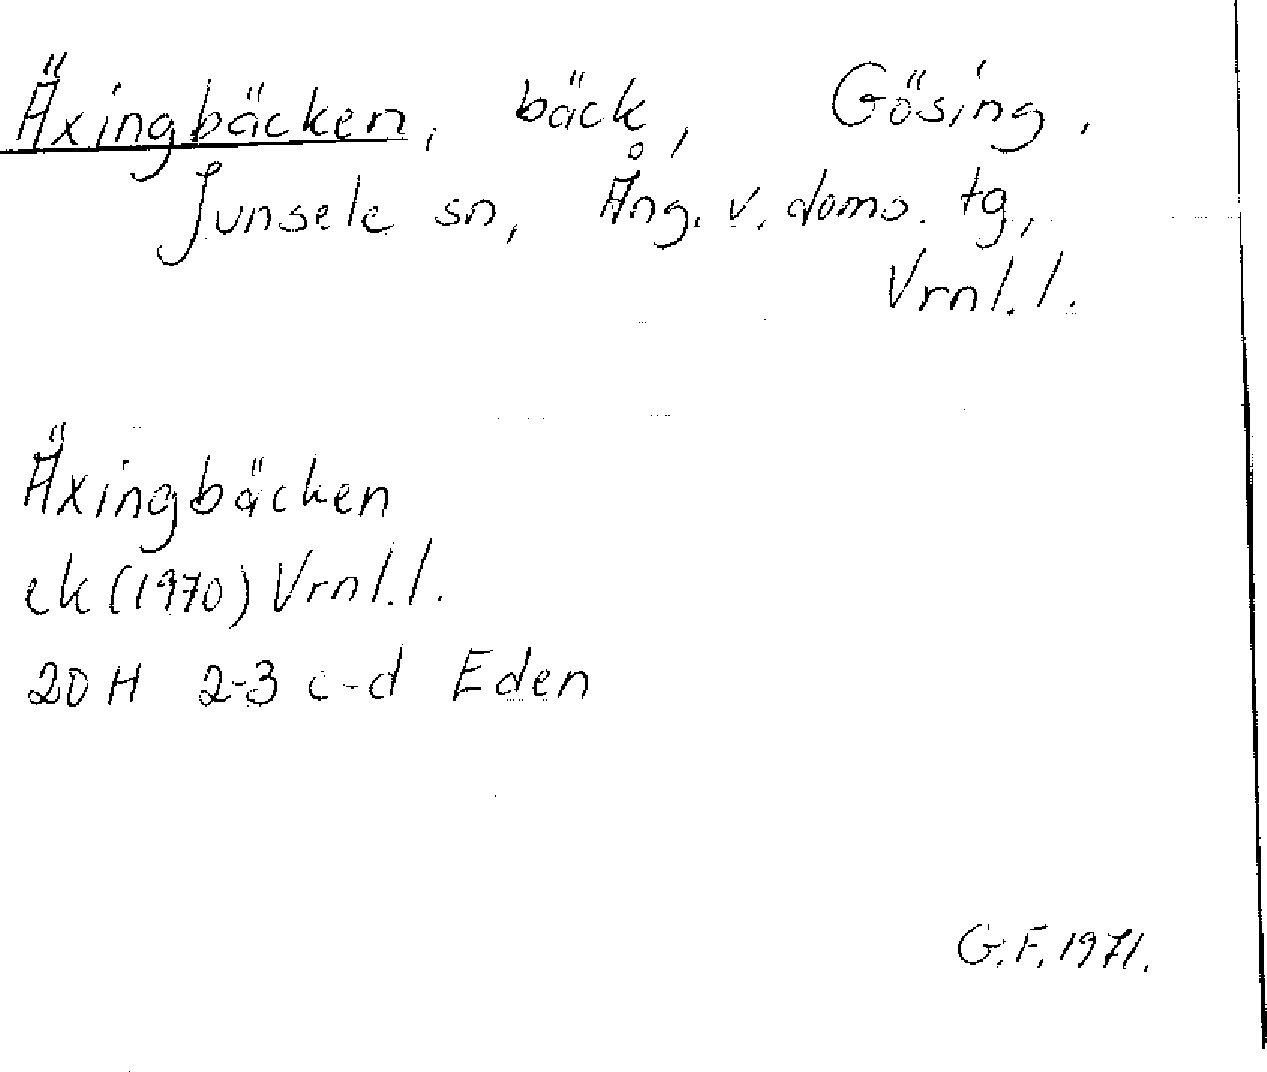 Äxingbäcken, bäck, Gösing.
Junsele sn, Ång. v. doms. tg,
Vrnl. l.
Äxingbäcken
ek (1970) Vrnl. l.
20 H 2-3 c-d Eden
G. F. 1971.